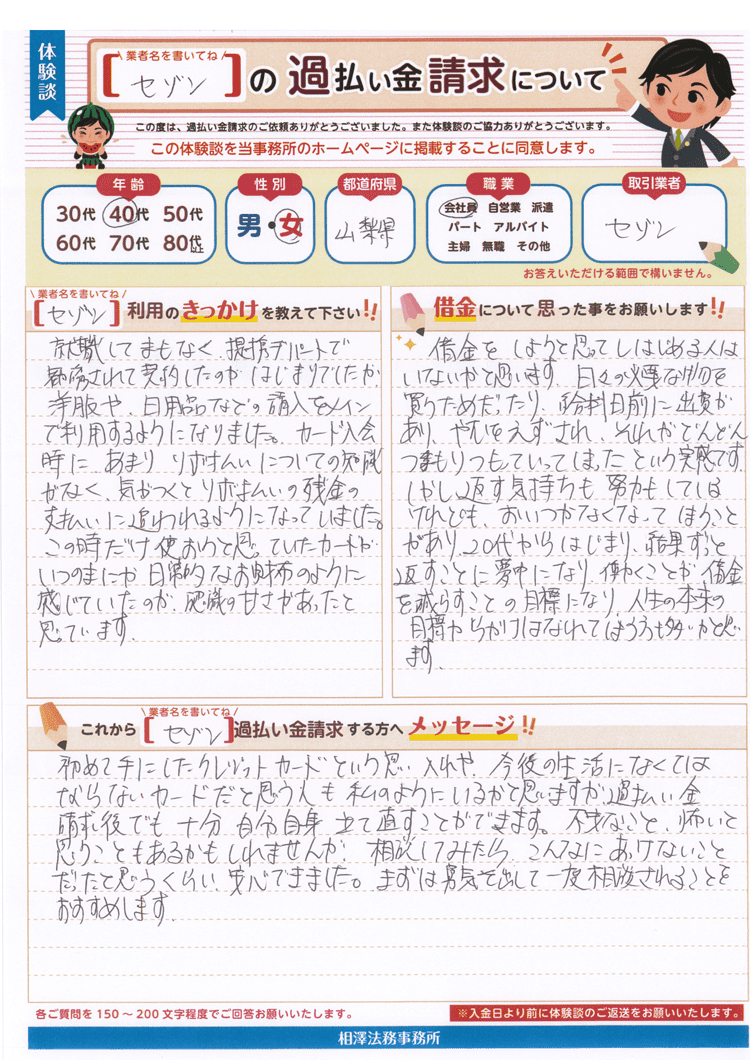 体験談
\ 業者名を書いてね /
[セゾン]の過払い金請求について
この度は、過払い金請求のご依頼ありがとうございました。また体験談のご協力ありがとうございます。
この体験談を当事務所のホームページに掲載することに同意します。
年齢
30代 40代 50代
60代 70代 80代以上
性別
男・女
都道府県
山梨県
職業
会社員 自営業 派遣
パート アルバイト
主婦 無職 その他
取引業者
セゾン
お答えいただける範囲で構いません。
\ 業者名を書いてね /
[セゾン]利用のきっかけを教えて下さい!!
就職してまもなく、提携デパートで
勧誘されて契約したのがはじまりでしたが、
洋服や、日用品などの購入をメイン
で利用するようになりました。カード入会
時に、あまりリボ払いについての知識
がなく、気がつくとリボ払いの残金の
支払いに追われるようになってしまいました。
この時だけ使おうと思っていたカードが
いつのまにか日常的なお財布のように
感じていたのが、認識の甘さがあったと
思っています。
借金について思った事をお願いします!!
借金をしようと思ってしはじめる人は
いないかと思います。日々の必要な物を
買うためだったり、給料日前に出費が
あり、やむをえずされ、それがどんどん
つもりつもっていってしまったという実感です。
しかし返す気持ちも努力もしているけ
れども、おいつかなくなってしまうこと
があり、20代からはじまり、結果ずっと
返すことに夢中になり、働くことが、借金
を減らすことの目標になり、人生の本来の
目標からかけはなれてしまう方も多いかと思い
ます。
\ 業者名を書いてね /
これから[セゾン]過払い金請求する方へメッセージ!!
初めて手にしたクレジットカードという思い入れや、今後の生活になくては
ならないカードだと思う人も私のようにいるかと思いますが過払い金
請求後でも十分自分自身立て直すことができます。不安なこと、怖いと
思うこともあるかもしれませんが、相談してみたら、こんなにあっけないこと
だったと思うくらい、安心できました。まずは勇気を出して一度相談されることを
おすすめします。
各ご質問を150～200文字程度でご回答お願いいたします。
※入金日より前に体験談のご返送をお願いいたします。
相澤法務事務所